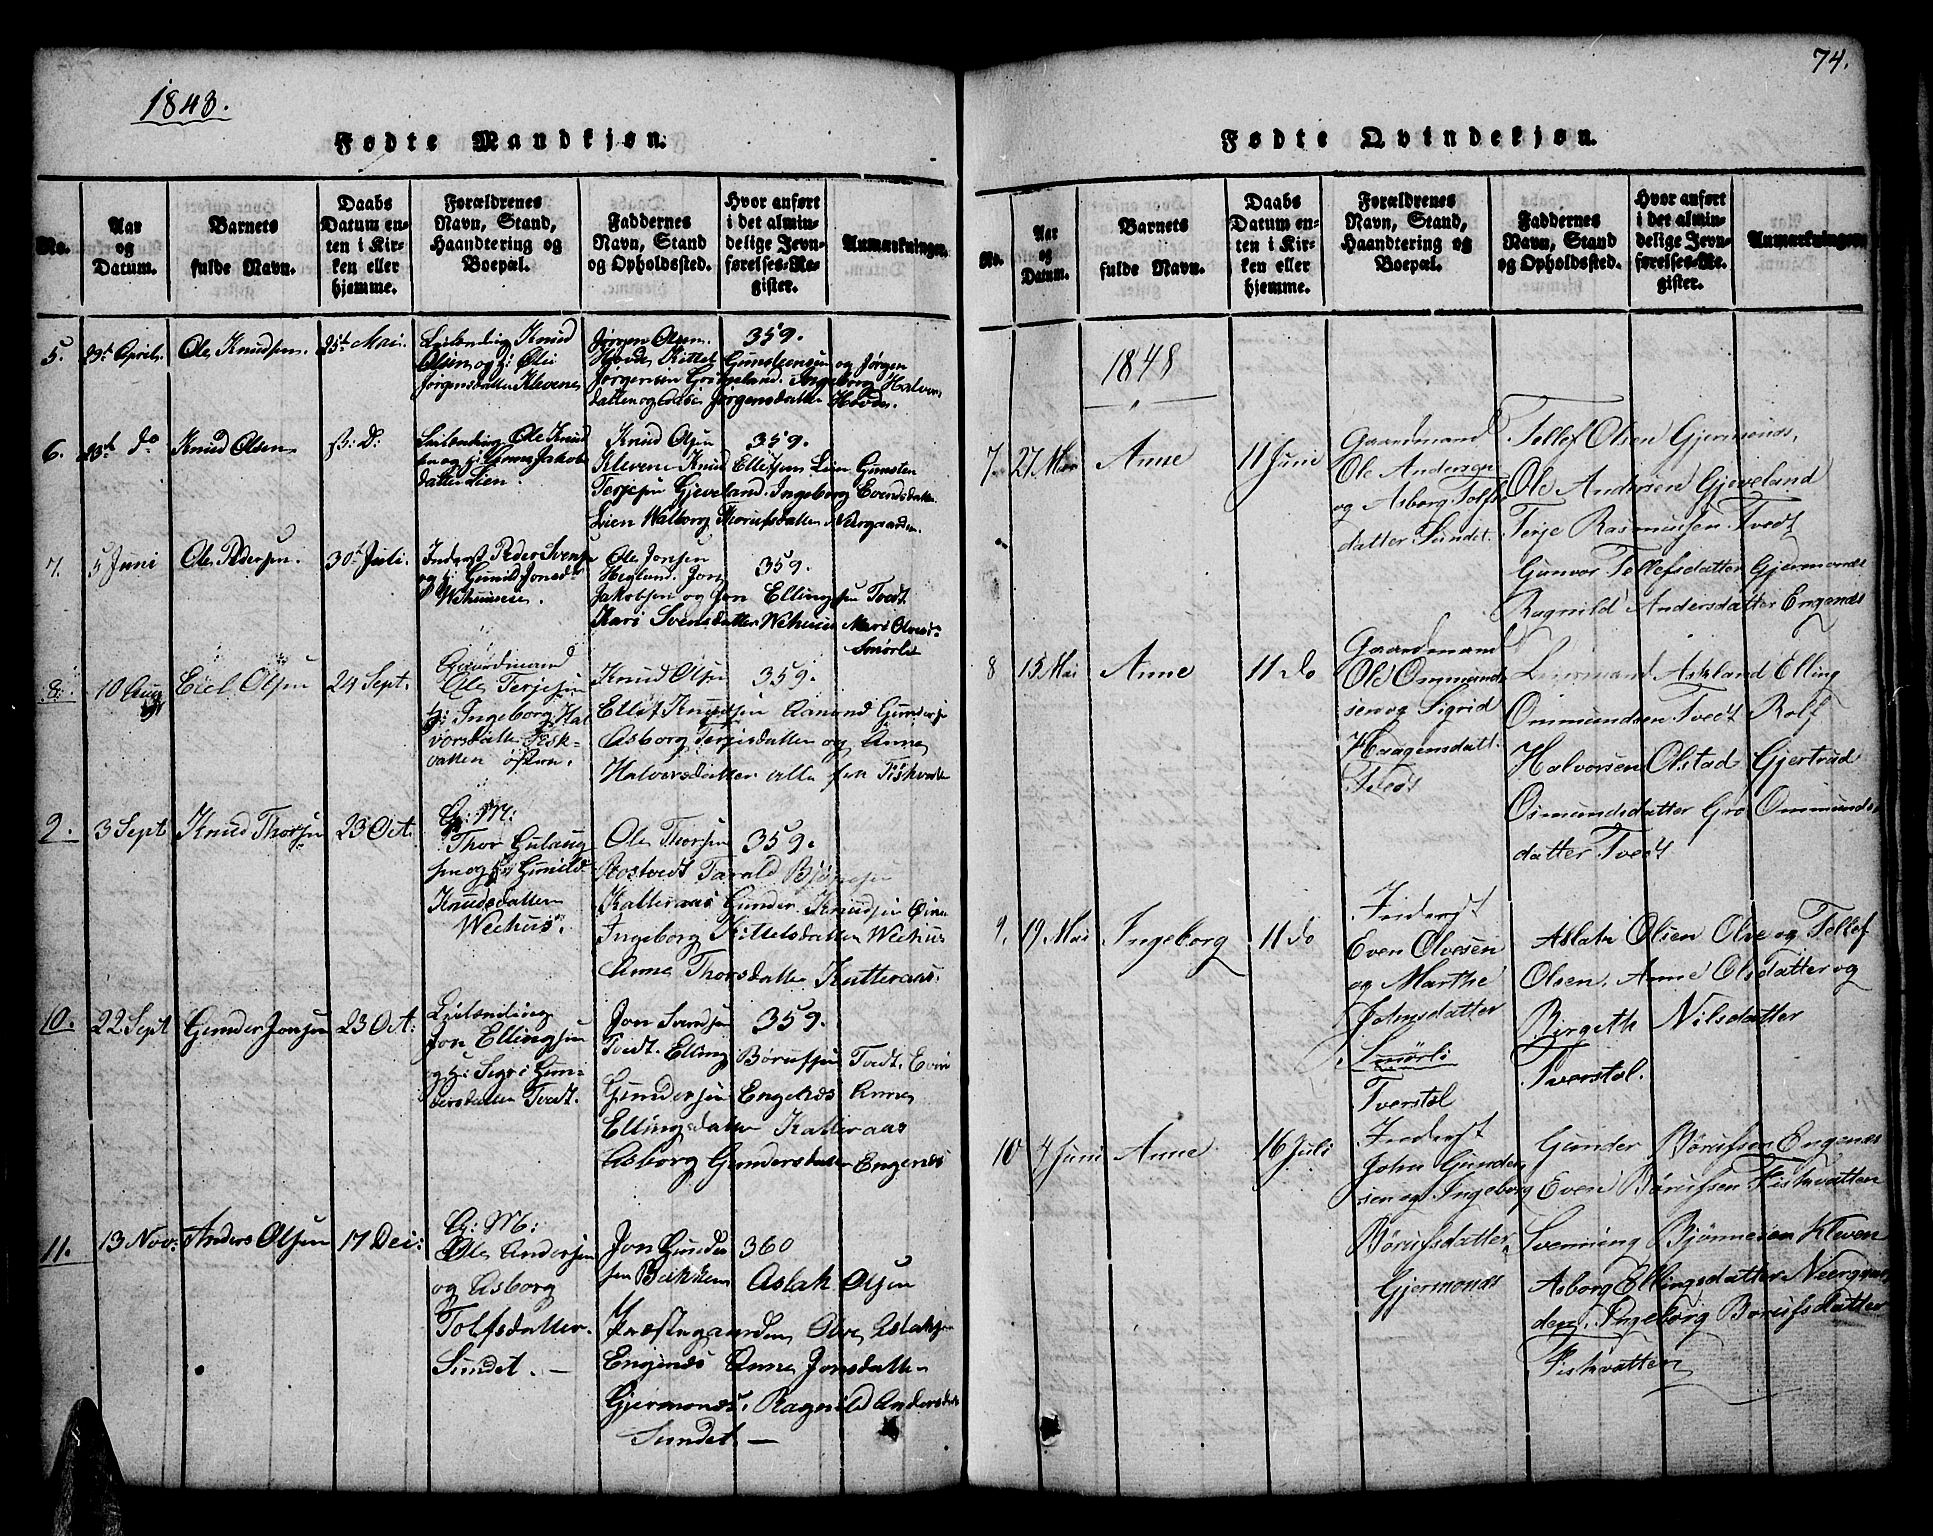 74.
1843.
Fødte Mandkjøn.
No.
Aar og Datum.
Barnets fulde Navn.
Daabs Datum enten i Kirken eller hjemme.
Forældrenes Navn, Stand, Haandtering og Boepæl.
Faddernes Navn, Stand og Opholdssted.
Hvor anført i det almindelige Jevnførelses-Register.
Anmærkninger.
5.
Ole Knudsen.
25de Mai.
Leilænding Knud
Olsen og
Jørgensdatter Klevene
Jørgen Olsen
359.
Kittel Gunsteensen og Jørgen
Jørgensen Ingeborg Halvors
datter og Jørgensdatter
6.
do
Knud Olsen
D:
Leilænding Ole Knud
sen og Jakobs
datter Lien.
Knud Olsen
359.
Klevene Knud Ellefsen Lien Gunsten
Terjesen Gjeveland. Ingeborg Evensdatter
Lien Walborg Neergaarden
7.
5 Juni
Ole Pedersen.
30te Juli.
Inderst Peder Svens
og Gunild Jonsd
Ole Jonsen
359.
Jon
Jakobsen og Jon Ellingsen Tvedt
Kari Svensdatter Mari
Smørli
8.
10 Aug
Olsen
24 Sept.
Gaardmand
Ole Terjesen
Ingeborg Hal
vorsdatter Fisk-
vatten
Knud Olsen
359.
Ellef Knudsen Aanund Gunders
Asborg Terjesdatter og Anne
Halvorsdatter alle fra Fiskvatten
9.
3 Sept
Knud Thorsen
23 Oct.
G: M:
Thor
sen og Gunild
Knudsdatter
Weehus.
Ole Thorsen
359.
Rostvedt Tarald Bjørnsen
Katteraas Gunder Knudsen
Ingeborg Kittelsdatter Weehus
Anne Thorsdatter Katteraas
10.
22 Sept
Gunder Jonsen
23 Oct:
Leilænding
Jon Ellingsen
og Sigri Gun-
dersdatter Tvedt.
Jon Svendsen
359.
Tvedt. Elling Børufsen Tvedt, Even
Gundersen Engenæs Anne
Ellingsdatter Katteraas
Asborg Gundersdatter Engenæs
11.
13 Nov:
Anders Olsen
17 Dec:
G: M:
Ole Andersen
og Asborg
Tolfsdatter.
Sundet. —
Jon Gunder
360
sen Bakken Aslak Olsen
Præstegaarden Olve Aslaksen
Engenæs Anne Jonsdatter
Gjermonæs. Ragnild Andersdatter
Sundet. —
Fødte Qvindekjøn.
No.
Aar og Datum.
Barnets fulde Navn.
Daabs Datum enten i Kirken eller hjemme.
Forældrenes Navn, Stand, Haandtering og Boepæl.
Faddernes Navn, Stand og Opholdssted.
Hvor anført i det almindelige Jevnførelses-Register.
Anmærkninger.
1848
7.
27 Mai
Anne
11 Juni
Gaardmand
Ole Andersen
og Asborg Tolfs
datter Sundet.
Tellef Olsen Gjermonæs,
Ole Andersen Gjeveland
Terje Rasmussen Tvedt
Gunvor Tellefsdatter Gjermonæs
Ragnild Andersdatter Engenæs
8
15 Mai
Anne
11 do
Gaardmand
Ole Ommund
sen og Sigrid
Haagensdatt.
Tvedt
Linsmand Askland Elling
Ommundsen Tvedt Rolf
Halvorsen Olstad Gjertrud
Osmundsdatter Gro Ommunds
datter Tvedt
9.
19 Mai
Ingeborg
11 do
Inderst
Even Olvesen
og Marthe
Johnsdatter
Smørli
Tverstøl
Aslak Olsen Olve og Tellef
Olsen. Anne Olsdatter og
Birgeth Nilsdatter
Tverstøl.
10
4 Juni
Anne
16 Juli
Inderst
John Gunder
sen og Ingeborg
Børufsdatter
Gjermonæs
Gunder Børufsen Engenæs
Even Børufsen Fiskvatten
Svenning Bjønnesen Kleven
Asborg Ellingsdatter Neergaar
den, Ingeborg Børufsdatter
Fiskvatten